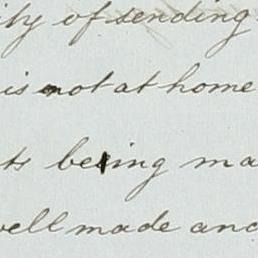 ity of sending
is not at home
ts being ma
well made and